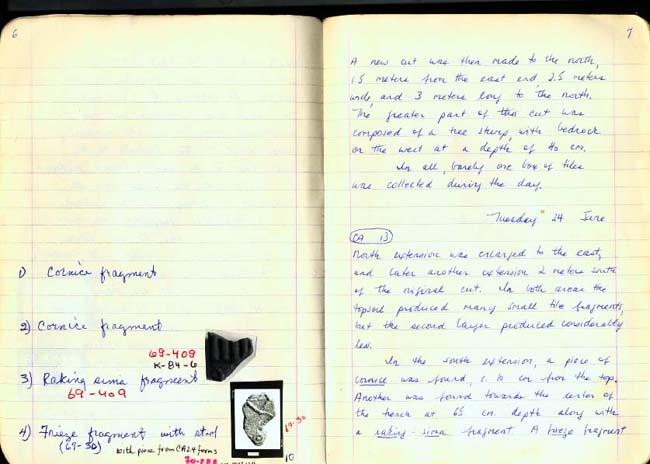 6
1) Cornice fragment
2) Cornice fragment
69-409
K-84-6
3) Raking sima fragment
69-409
4) Frieze fragment with stool
(69-30)
69-30
with piece from CA24 farms
10
7
A new cut was then made to the north,
1.5 meters from the east end, 2.5 meters
wide, and 3 meters long to the north.
The greater part of this cut was
composed of a tree stump, with bedrock
on the west at a depth of 40 cm.
In all, barely one box of tiles
was collected during the day.
Tuesday 24 June
CA 13
North extension was enlarged to the east,
and later another extension 2 meters south
of the original cut. In both areas the
topsoil produced many small tile fragments,
but the second layer produced considerably
less.
In the south extension, a piece of
cornice was found, c. 10 cm from the top.
Another was found towards the center of
the trench at 65 cm. depth along with
a raking-sima fragment. A frieze fragment